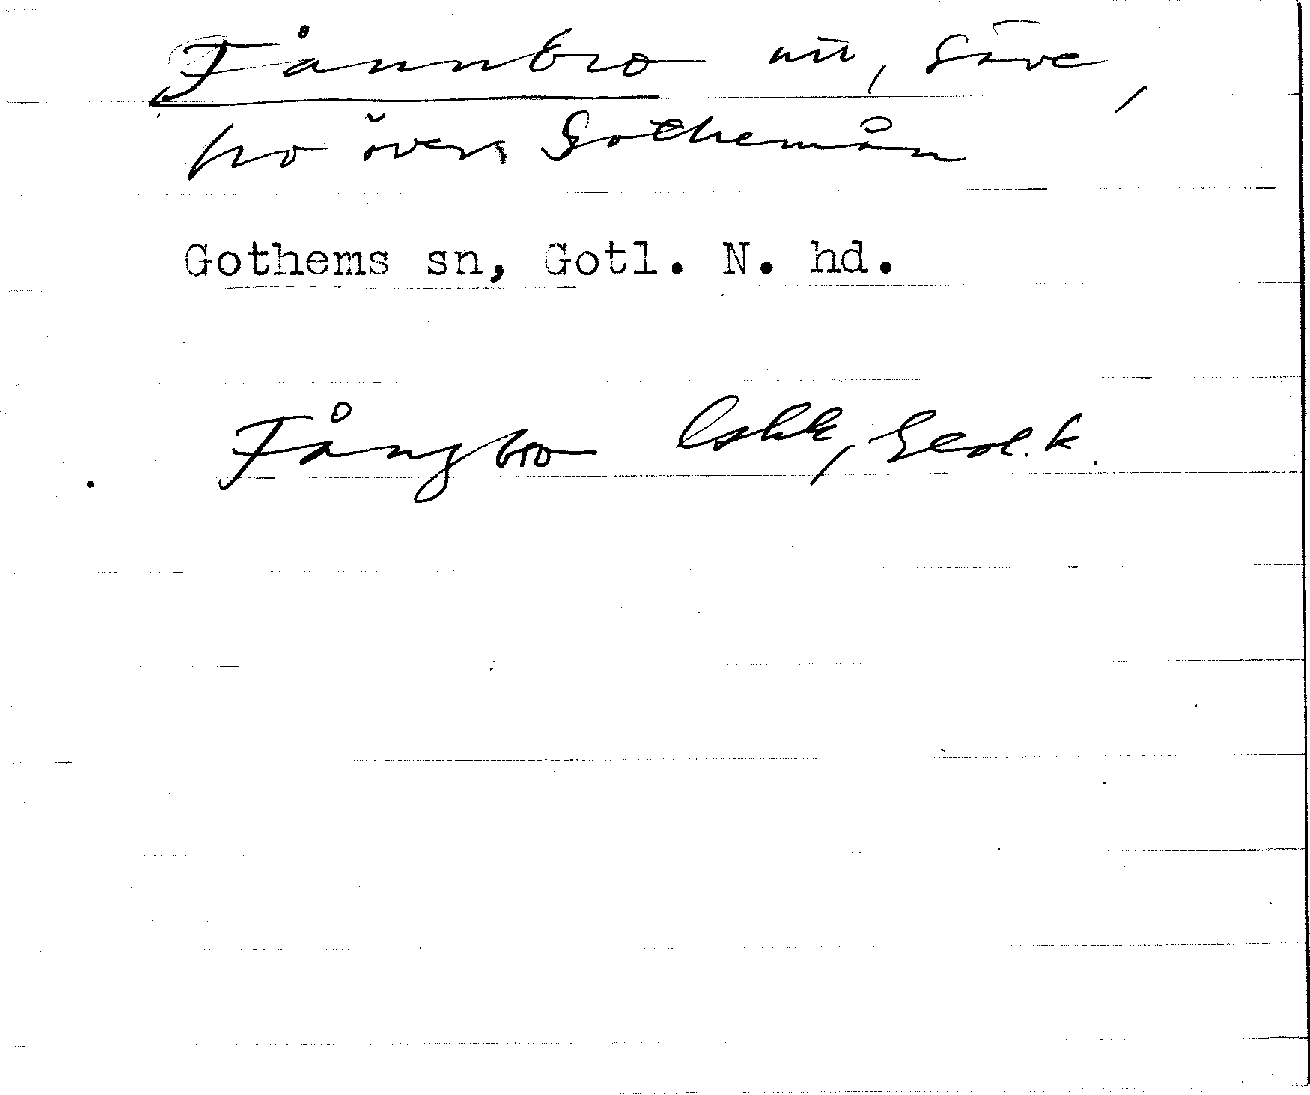 Fånnbro nu, Säve,
bro över Gothemån
Gothems sn, Gotl. N. hd.
Fångbro Geol.k.